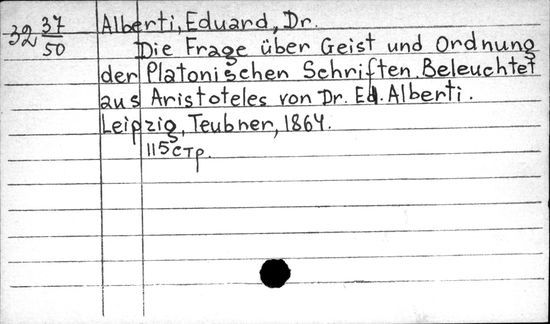 32 37/50
Alberti, Eduard, Dr.
Die Frage über Geist und Ordnung
der Platonischen Schriften. Beleuchtet
aus Aristoteles von Dr. Ed. Alberti.
Leipzig, Teubner, 1864.
115 стр.